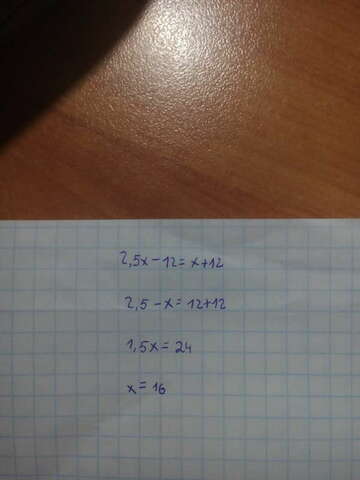 2,5x-12=x+12
2,5-x=12+12
1,5x=24
x=16